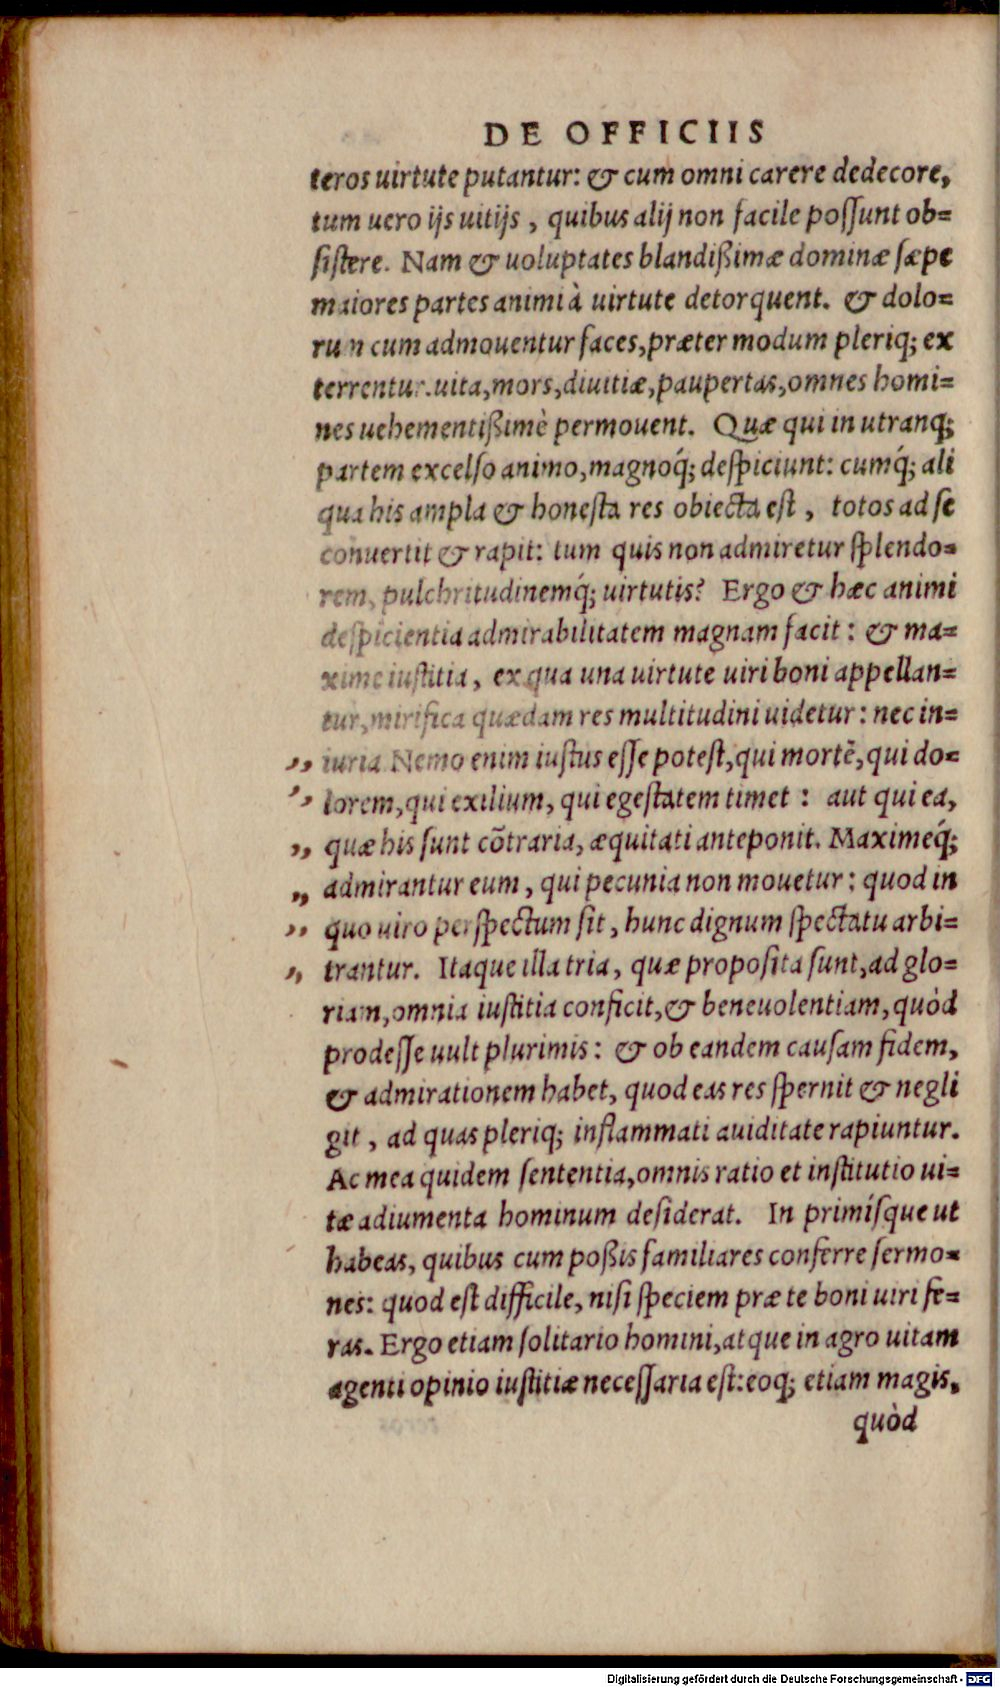 DE OFFICIIS
teros uirtute putantur: & cum omni carere dedecore,
tum uero ijs uitijs, quibus alij non facile possunt ob=
sistere. Nam & uoluptates blandißimæ dominæ sæpe
maiores partes animi à uirtute detorquent. & dolo=
rum cum admouentur faces, præter modum pleriq; ex
terrentur. uita, mors, diuitiæ, paupertas, omnes homi=
nes uehementißimè permouent. Quæ qui in utranq;
partem excelso animo, magnoq́; despiciunt: cumq́; ali
qua his ampla & honesta res obiecta est, totos ad se
conuertit & rapit: tum quis non admiretur splendo=
rem, pulchritudinemq́; uirtutis? Ergo & hæc animi
despicientia admirabilitatem magnam facit: & ma=
xime iustitia, ex qua una uirtute uiri boni appellan=
tur, mirifica quædam res multitudini uidetur: nec in=
,, iuria Nemo enim iustus esse potest, qui mortē, qui do=
,, lorem, qui exilium, qui egestatem timet: aut qui ea,
,, quæ his sunt cōtraria, æquitati anteponit. Maximeq́;
,, admirantur eum, qui pecunia non mouetur: quod in
,, quo uiro perspectum sit, hunc dignum spectatu arbi=
,, trantur. Itaque illa tria, quæ proposita sunt, ad glo=
riam, omnia iustitia conficit, & beneuolentiam, quòd
prodesse uult plurimis: & ob eandem causam fidem,
& admirationem habet, quod eas res spernit & negli
git, ad quas pleriq; inflammati auiditate rapiuntur.
Ac mea quidem sententia, omnis ratio et institutio ui=
tæ adiumenta hominum desiderat. In primísque ut
habeas, quibus cum poßis familiares conferre sermo=
nes: quod est difficile, nisi speciem præ te boni uiri fe=
ras. Ergo etiam solitario homini, atque in agro uitam
agenti opinio iustitiæ necessaria est: eoq; etiam magis,
quòd
Digitalisierung gefördert durch die Deutsche Forschungsgemeinschaft - DFG